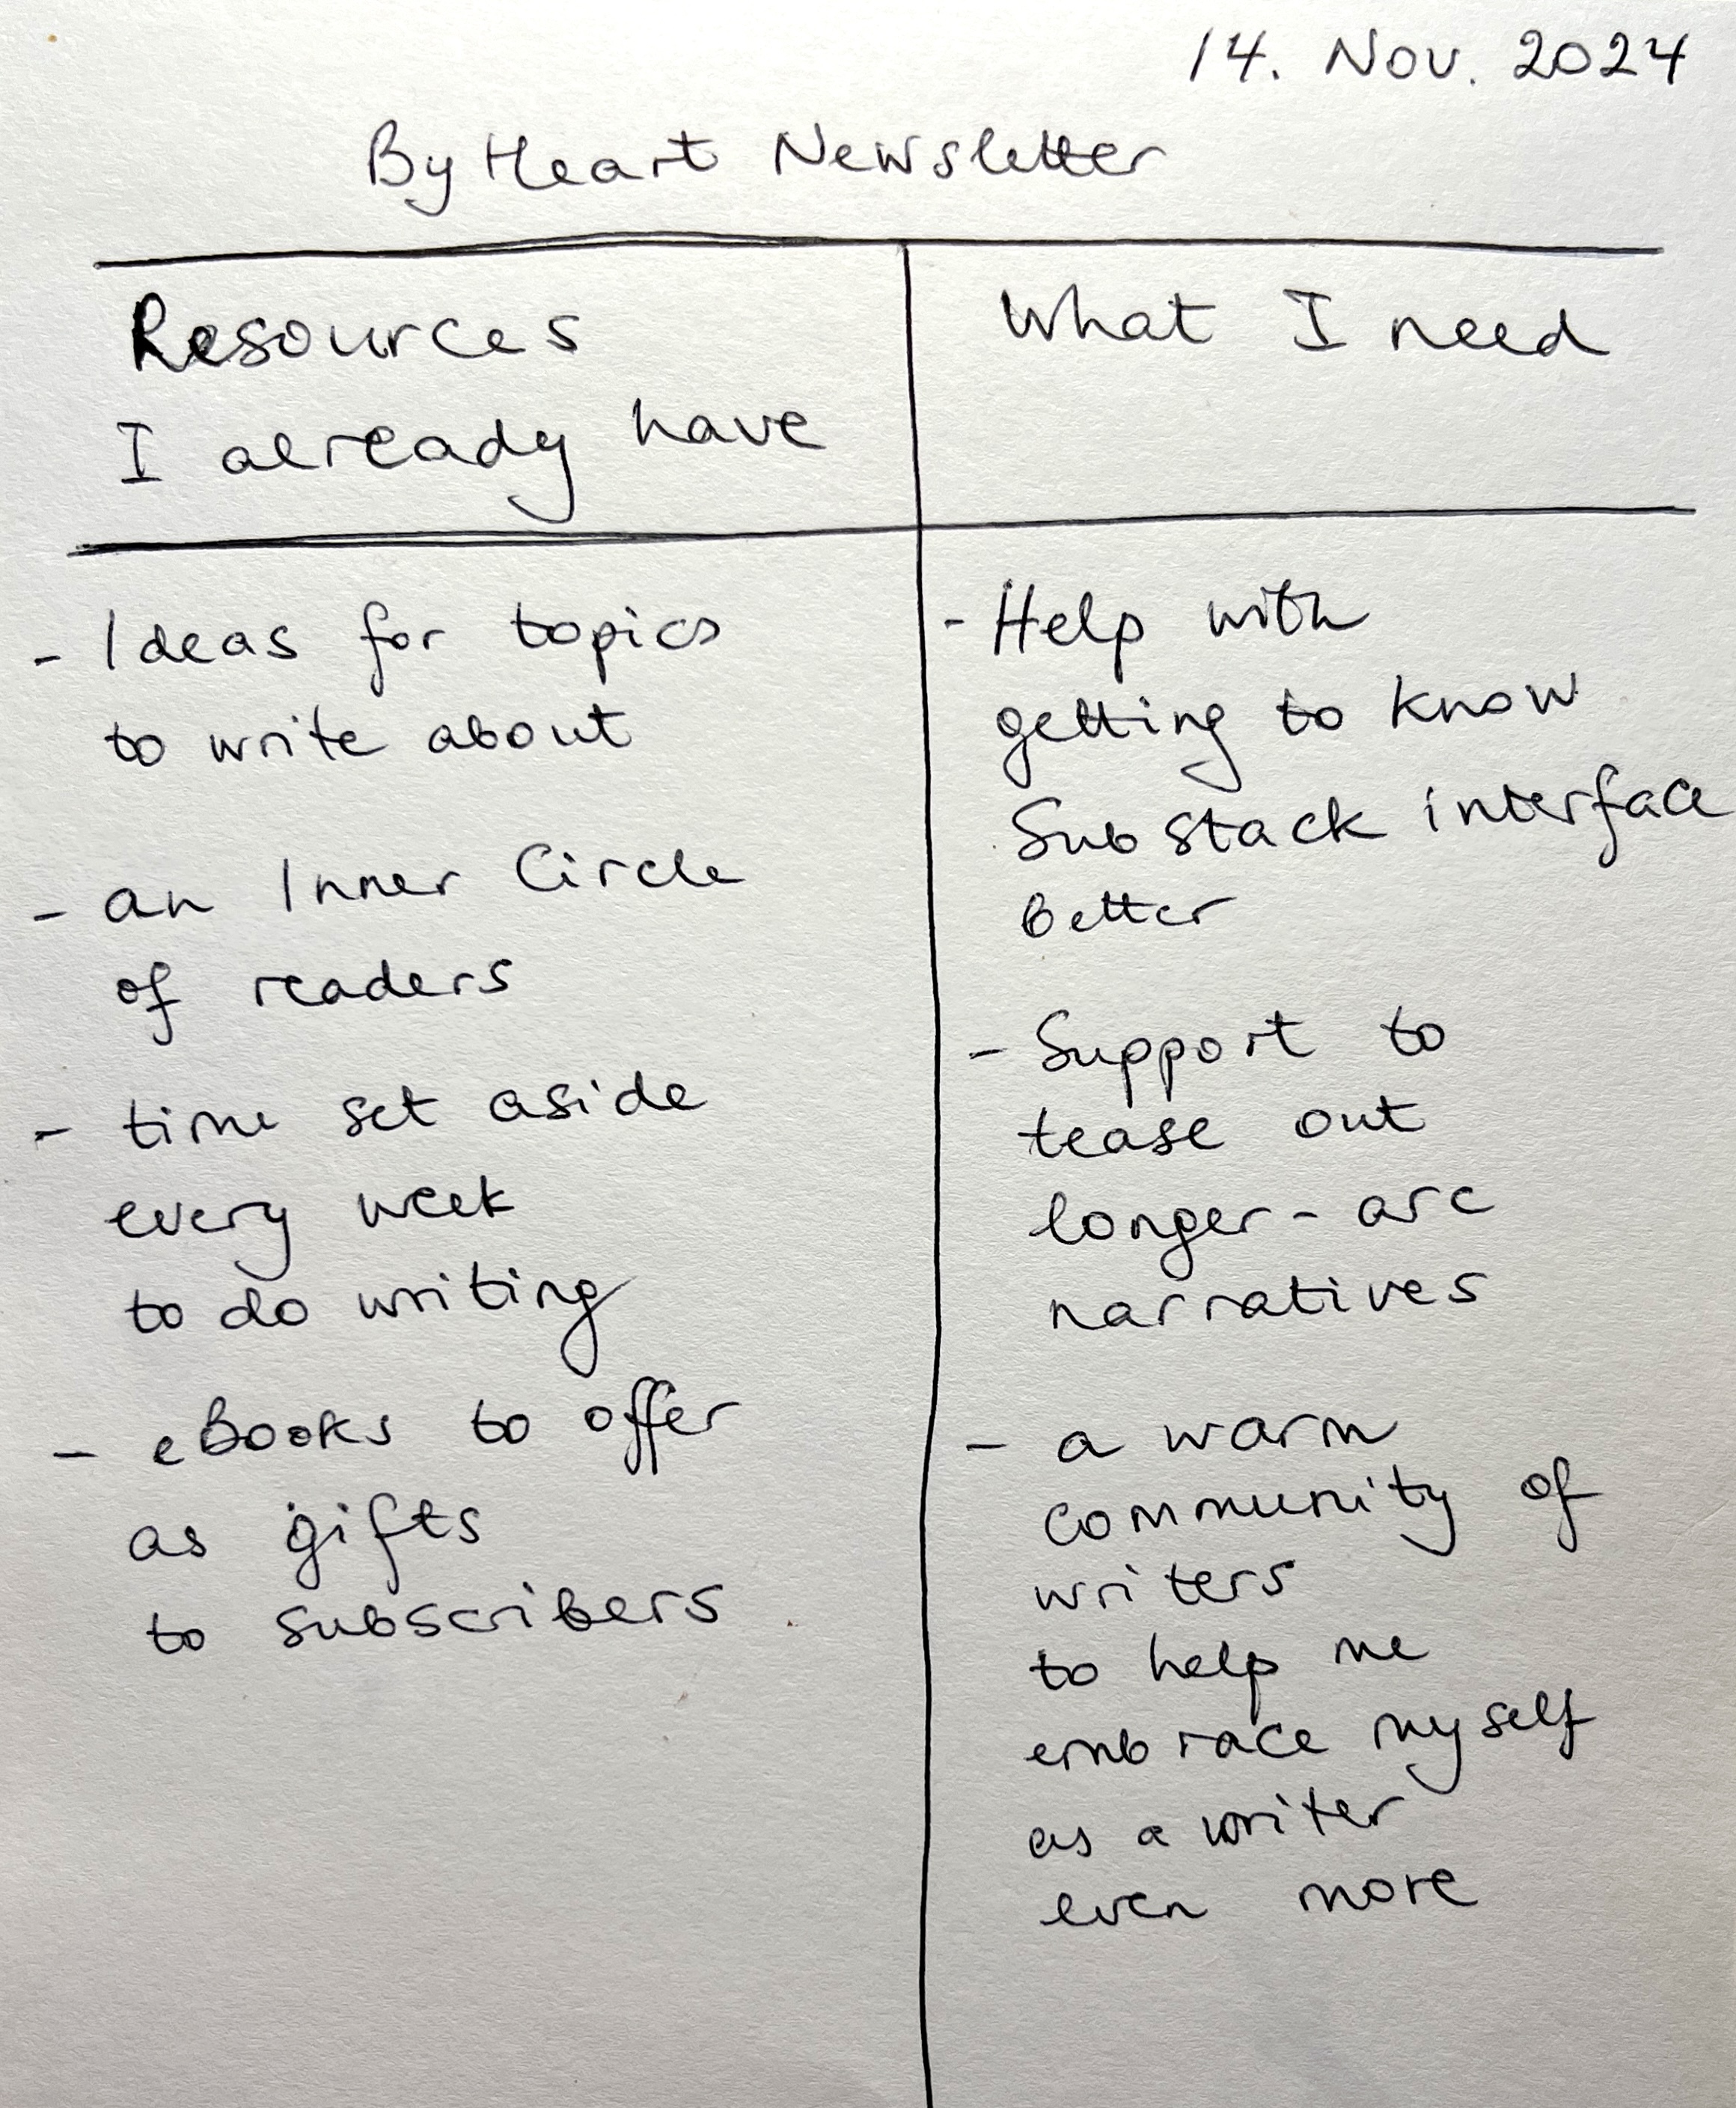 14. Nov. 2024
By Heart Newsletter
Resources
I already have
- Ideas for topics
to write about
- an Inner Circle
of readers
- time set aside
every week
to do writing
- eBooks to offer
as gifts
to subscribers
What I need
- Help with
getting to know
Substack interface
better
- Support to
tease out
longer-arc
narratives
- a warm
community of
writers
to help me
embrace myself
as a writer
even more